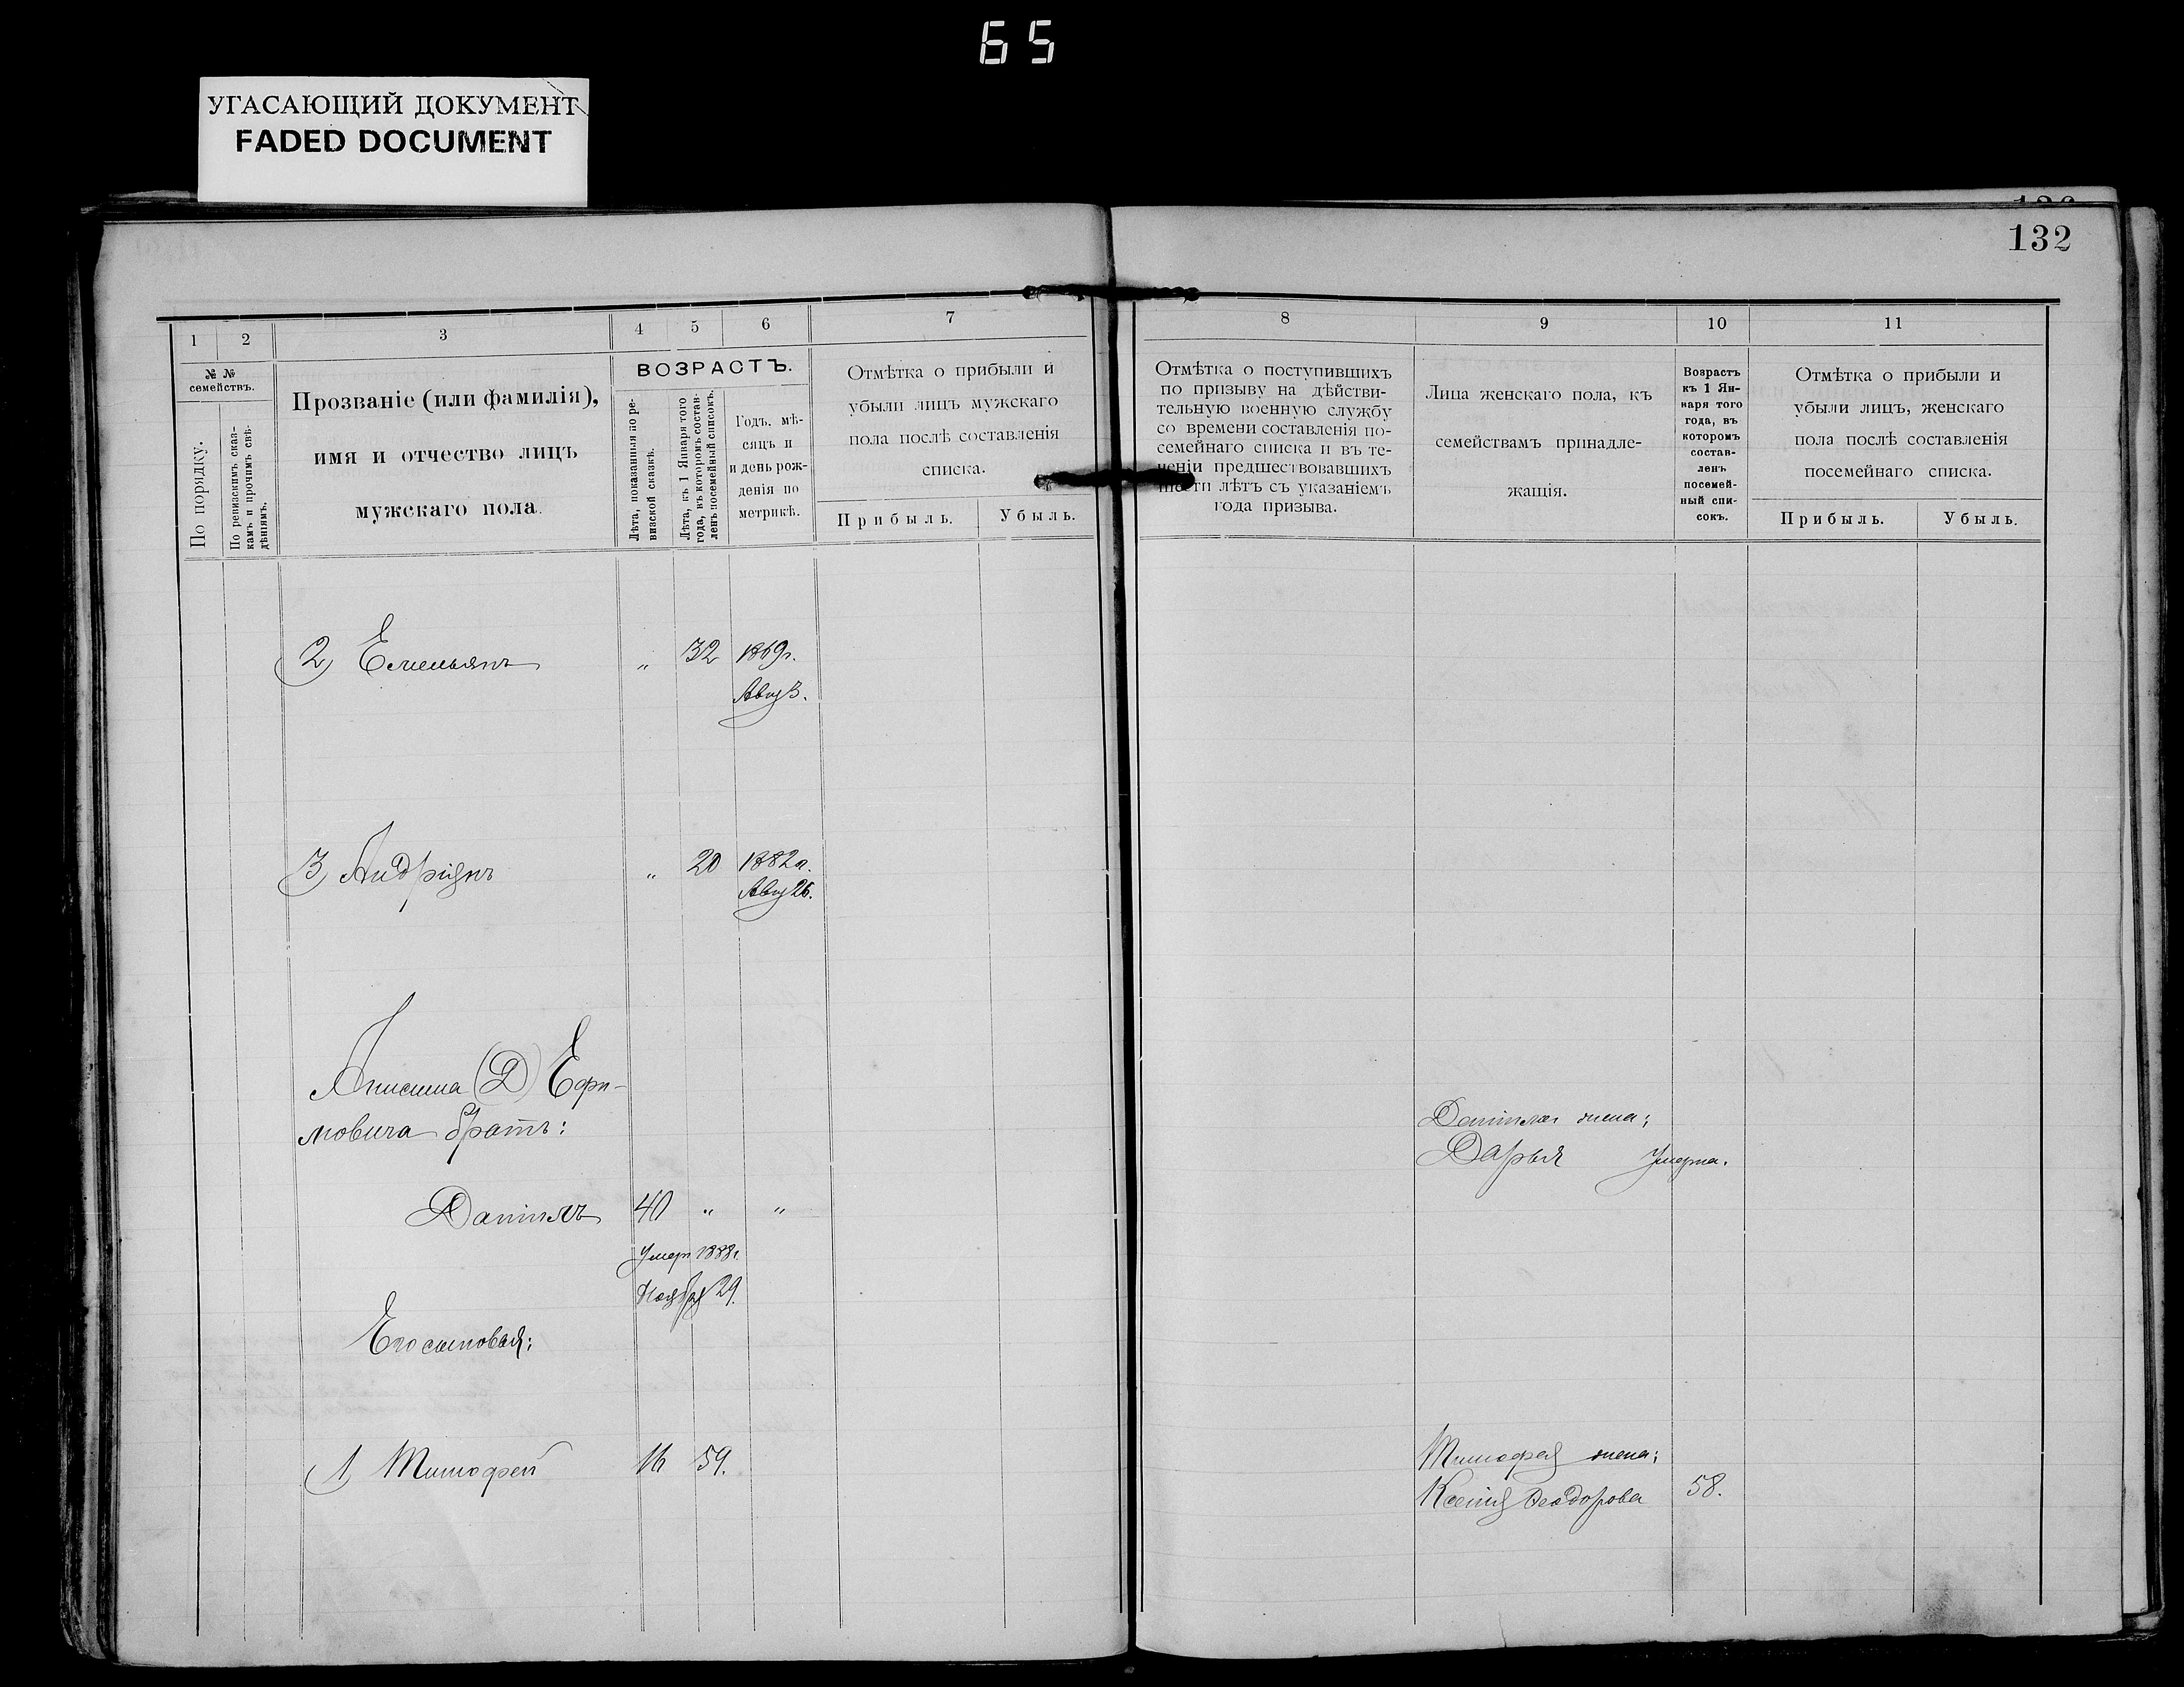 65
УГАСАЮЩИЙ ДОКУМЕНТ
FADED DOCUMENT
132
1 2 3 4 5 6 7
№ № семействъ.
По порядку.
По ревизскимъ сказ-
камъ и прочимъ свѣ-
дѣніямъ.
Прозваніе (или фамилія),
имя и отчество лицъ
мужскаго пола.
ВОЗРАСТЪ.
Лѣта, показанныя по ре-
визской сказкѣ.
Лѣта, къ 1 Января того
года, въ которомъ состав-
ленъ посемейный списокъ.
Годъ, мѣ-
сяцъ и
и день рож-
денія по
метрикѣ.
Отмѣтка о прибыли и
убыли лицъ мужскаго
пола послѣ составленія
списка.
Прибыль. Убыль.
2) Емельянъ " 32 1869г.
Авг 3.
3) Андріянъ " 20 1882г.
Авг 26.
Анисима (Д) Ефи-
мовича братъ:
Даніилъ 40 " "
Умеръ 1888г
Ноября 29.
Его сыновья:
1) Тимофей 16 59.
8 9 10 11
Отмѣтка о поступившихъ
по призыву на дѣйстви-
тельную военную службу
со времени составленія по-
семейнаго списка и въ те-
ченіи предшествовавшихъ
шести лѣтъ съ указаніемъ
года призыва.
Лица женскаго пола, къ
семействамъ принадле-
жащія.
Возрастъ
къ 1 Ян-
варя того
года, въ
которомъ
состав-
ленъ
посемей-
ный спи-
сокъ.
Отмѣтка о прибыли и
убыли лицъ, женскаго
пола послѣ составленія
посемейнаго списка.
Прибыль. Убыль.
Даніила жена;
Дарья Умерла.
Тимофея жена;
Ксенія Феодорова 58.